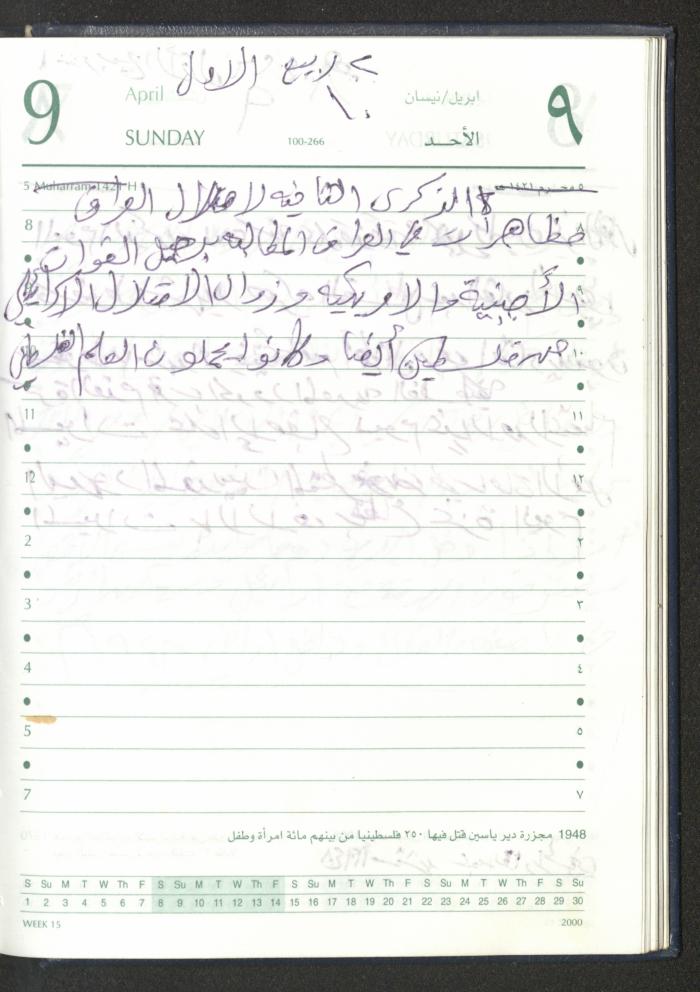 ربيع الاول
9 April ابريل/نيسان ٩
SUNDAY 100-266 الأحد
5 Muharram 1421 H ٥ محرم ١٤٢١ هـ
الذكرى الثانيه لاحتلال العراق
8 مظاهرات في العراق المطالبه القوات ٨
الأجنبية والامريكيه وزوال الاحتلال ٩
فلسطين أيضا وكانوا يحملون العلم الفلسطيني ١٠
11 ١١
12 ١٢
2 ٢
3 ٣
4 ٤
5 ٥
7 ٧
1948 مجزرة دير ياسين قتل فيها ٢٥٠ فلسطينيا من بينهم مائة امرأة وطفل
S Su M T W Th F S Su M T W Th F S Su M T W Th F S Su M T W Th F S Su
1 2 3 4 5 6 7 8 9 10 11 12 13 14 15 16 17 18 19 20 21 22 23 24 25 26 27 28 29 30
WEEK 15 2000